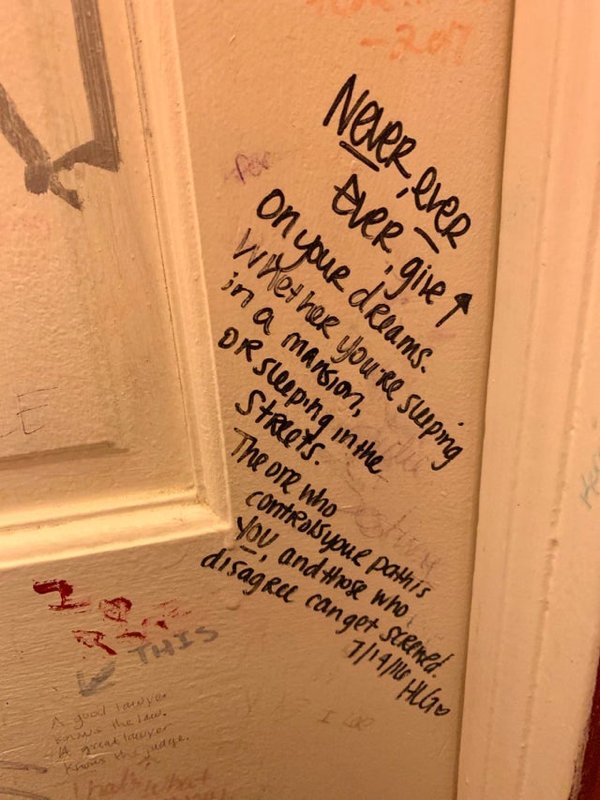 -2017
Never, ever
Ever, give ↑
on your dreams.
Whether you're sleeping
in a mansion,
or sleeping in the
streets.
The one who
controls your path is
you, and those who
disagree can get screwed.
7/19/16
HLG♡
THIS
A good lawyer
knows the law.
A great lawyer
knows the judge.
that's what